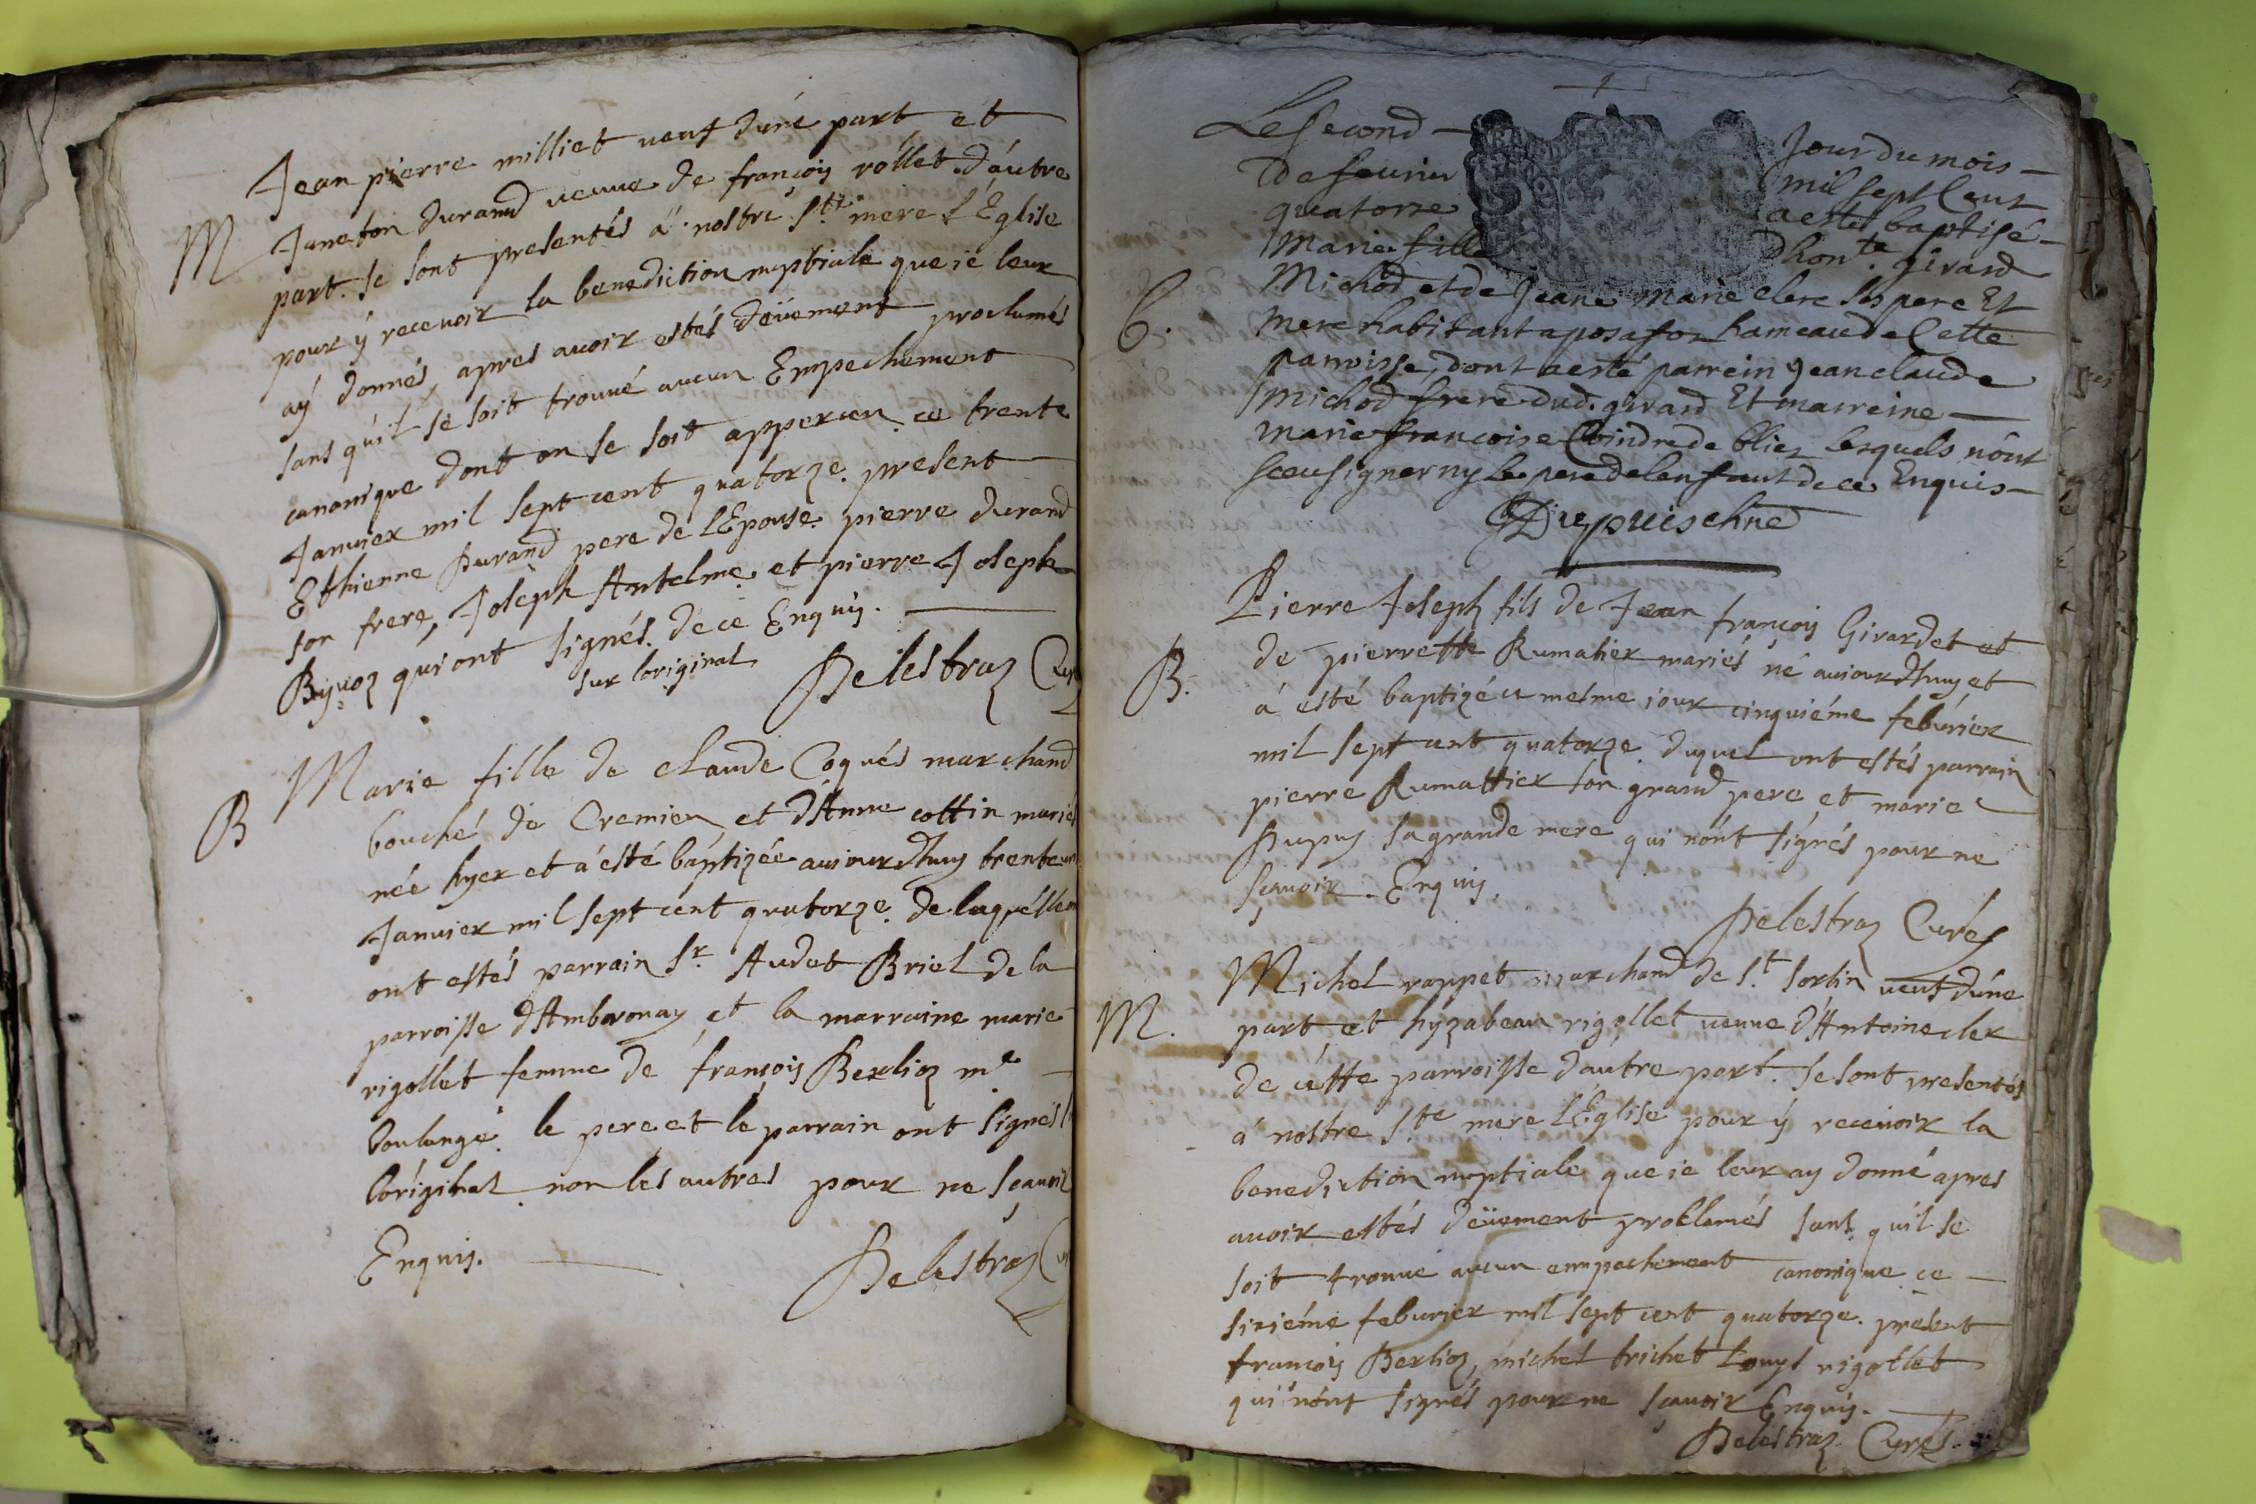 M
Jean pierre milliet veuf d'une part et
Janeton durand veuve de françois rollet d'autre
part. se sont presentés à nostre Ste mere l'Eglise
pour ÿ recevoir la benediction nuptiale que ie leur
aÿ donnés, apres avoir estés deüement proclamés
sans qu'il se soit trouvé aucun Empechement
canonique dont on se soit apperceu ce trente
Janvier mil sept cent quatorze. present
Ethienne Durand pere de l'Epouse pierre durand
son frere, Joseph Antelme et pierre Joseph
qui ont signés. de ce Enquis.
sur l'original
Delestraz
B
Marie fille de claude Coqués marchand
bouché de Cremieu et d'Anne cottin mariés
née hyer et à esté baptizée auiourdhuy
Janvier mil sept cent quatorze. de laquelle
ont estés parrain Sr. Audet Briel de la
parroisse d'Ambronay et la marraine marie
rigollet femme de françois Berlioz me
boulangé. le pere et le parrain ont signés
l'original non les autres pour ne sçavoir
Enquis.
Delestraz
Le second jour du mois
de feurier mil sept Cent
quatorze a estes baptisé
Marie fille d'honte. girard
B.
Michod et de Jeane Marie clerc ses pere Et
mere habitant a posafon hameau de Cette
parroisse, dont a esté parrein Jean claude
Michod frere dud. girard Et marreine
marie francoise Coindre de bliez lesquels n'ont
sceu signer ny le pere de lenfant de ce Enquis
B.
Pierre Joseph fils de Jean françois Girardet et
de pierrette Rumatier mariés né auiourdhuy et
à esté baptizé ce mesme iour cinquiéme feburier
mil sept cent quatorze. duquel ont estés parrain
pierre Rumattier son grand pere et marie
Dupuy sa grande mere qui n'ont signés pour ne
sçavoir. Enquis.
Delestraz Curés
M.
Michel rappet marchand de St. Sorlin veuf d'une
part et hyzabeau rigollet veuve d'Antoine cler
de cette parroisse dautre part. se sont presentés
à nostre Ste mere l'Eglise pour ÿ recevoir la
benediction nuptiale que ie leur ay donné apres
avoir estés deüement proklamés sans qu'il se
soit trouvé aucun empechement canonique ce
sixiéme feburier mil sept cent quatorze. present
françois Berlioz, michel trichet Louys rigollet
qui n'ont signés pour ne sçavoir Enquis.
Delestraz Curés.